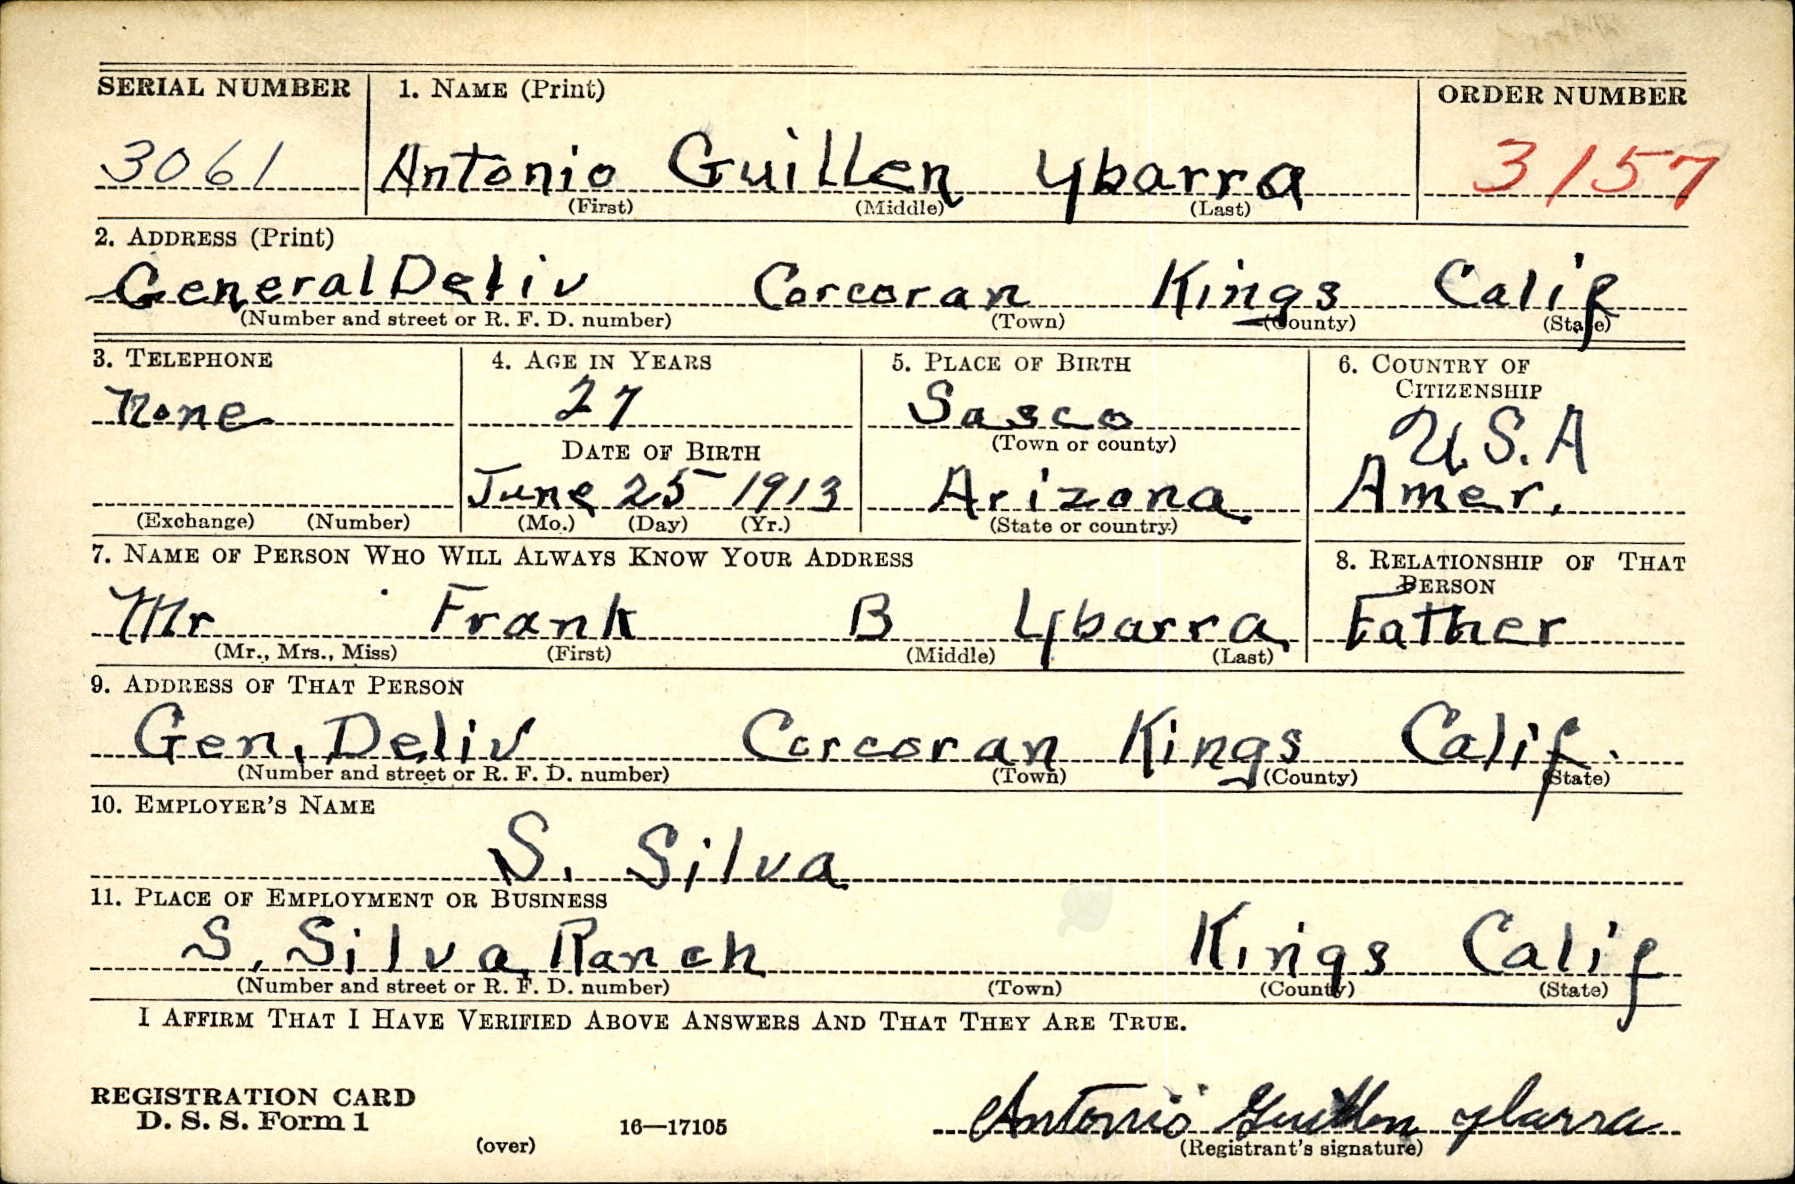 SERIAL NUMBER 1. NAME (Print) ORDER NUMBER
3061 Antonio Guillen Ybarra 3157
(First) (Middle) (Last)
2. ADDRESS (Print)
General Deliv Corcoran Kings Calif
(Number and street or R. F. D. number) (Town) (County) (State)
3. TELEPHONE 4. AGE IN YEARS 5. PLACE OF BIRTH 6. COUNTRY OF
CITIZENSHIP
None 27 Sasco U.S.A
DATE OF BIRTH (Town or county)
June 25 1913 Arizona Amer.
(Exchange) (Number) (Mo.) (Day) (Yr.) (State or country)
7. NAME OF PERSON WHO WILL ALWAYS KNOW YOUR ADDRESS 8. RELATIONSHIP OF THAT
PERSON
Mr Frank B Ybarra Father
(Mr., Mrs., Miss) (First) (Middle) (Last)
9. ADDRESS OF THAT PERSON
Gen. Deliv Corcoran Kings Calif.
(Number and street or R. F. D. number) (Town) (County) (State)
10. EMPLOYER'S NAME
S. Silva
11. PLACE OF EMPLOYMENT OR BUSINESS
S. Silva Ranch Kings Calif
(Number and street or R. F. D. number) (Town) (County) (State)
I AFFIRM THAT I HAVE VERIFIED ABOVE ANSWERS AND THAT THEY ARE TRUE.
REGISTRATION CARD
D. S. S. Form 1 16—17105 Antonio Guillen Ybarra
(over) (Registrant's signature)